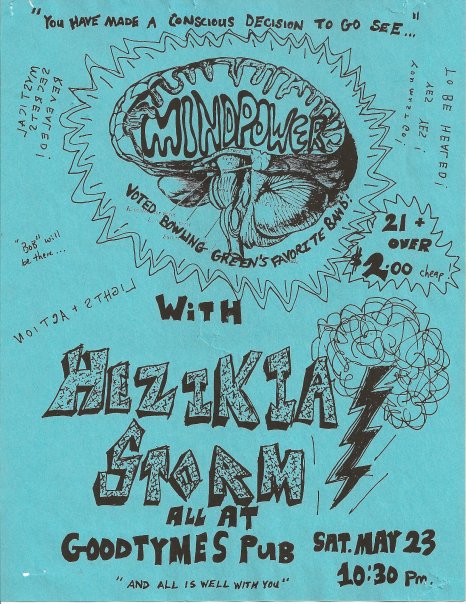 "YOU HAVE MADE A CONSCIOUS DECISION TO GO SEE..."
MYSTICAL
SECRETS
REVEALED!
TO BE HEALED!
YES YES!
You must go!
MINDPOWER
VOTED BOWLING GREEN'S FAVORITE BAND!
21 +
OVER
$2.00 cheap
"Bob" will
be there...
LIGHTS + ACTION
WITH
HEZIKIA
STORM
ALL AT
GOODTYMES PUB
SAT. MAY 23
10:30 PM.
"AND ALL IS WELL WITH YOU"